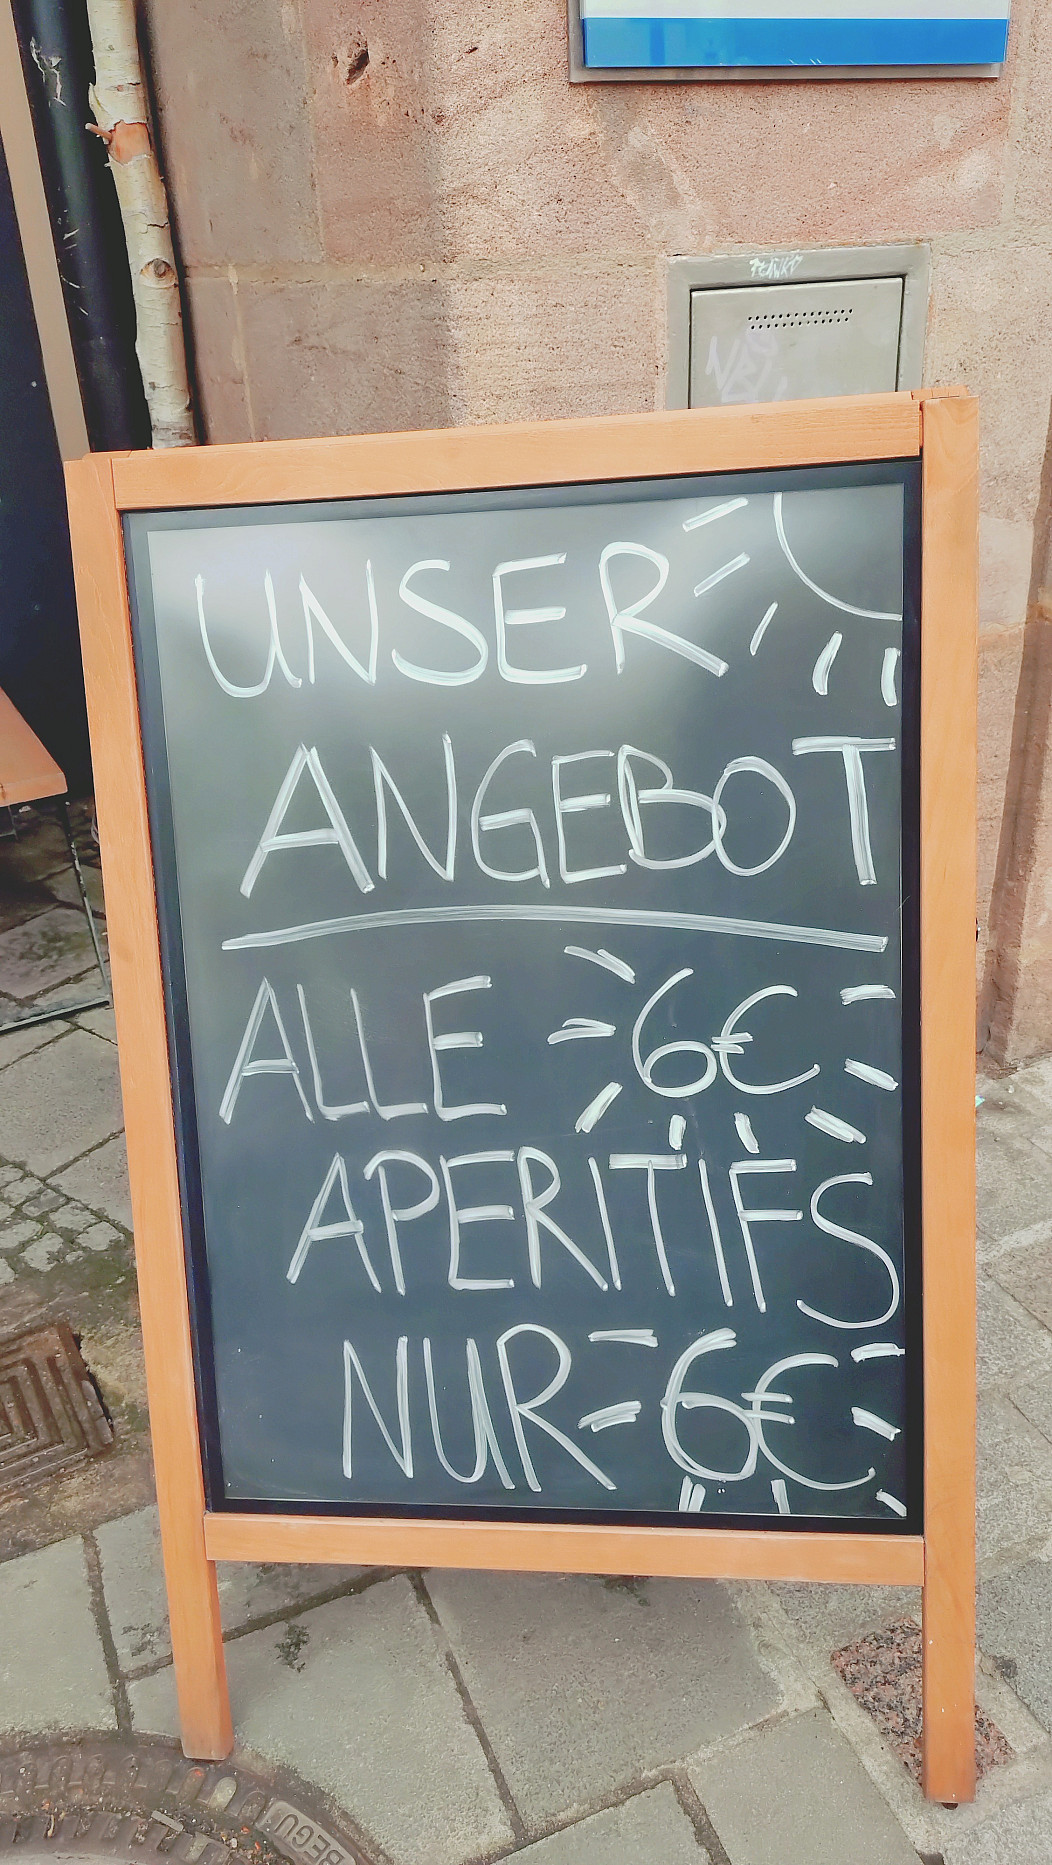 UNSER
ANGEBOT
ALLE 6€
APERITIFS
NUR 6€
BEGU